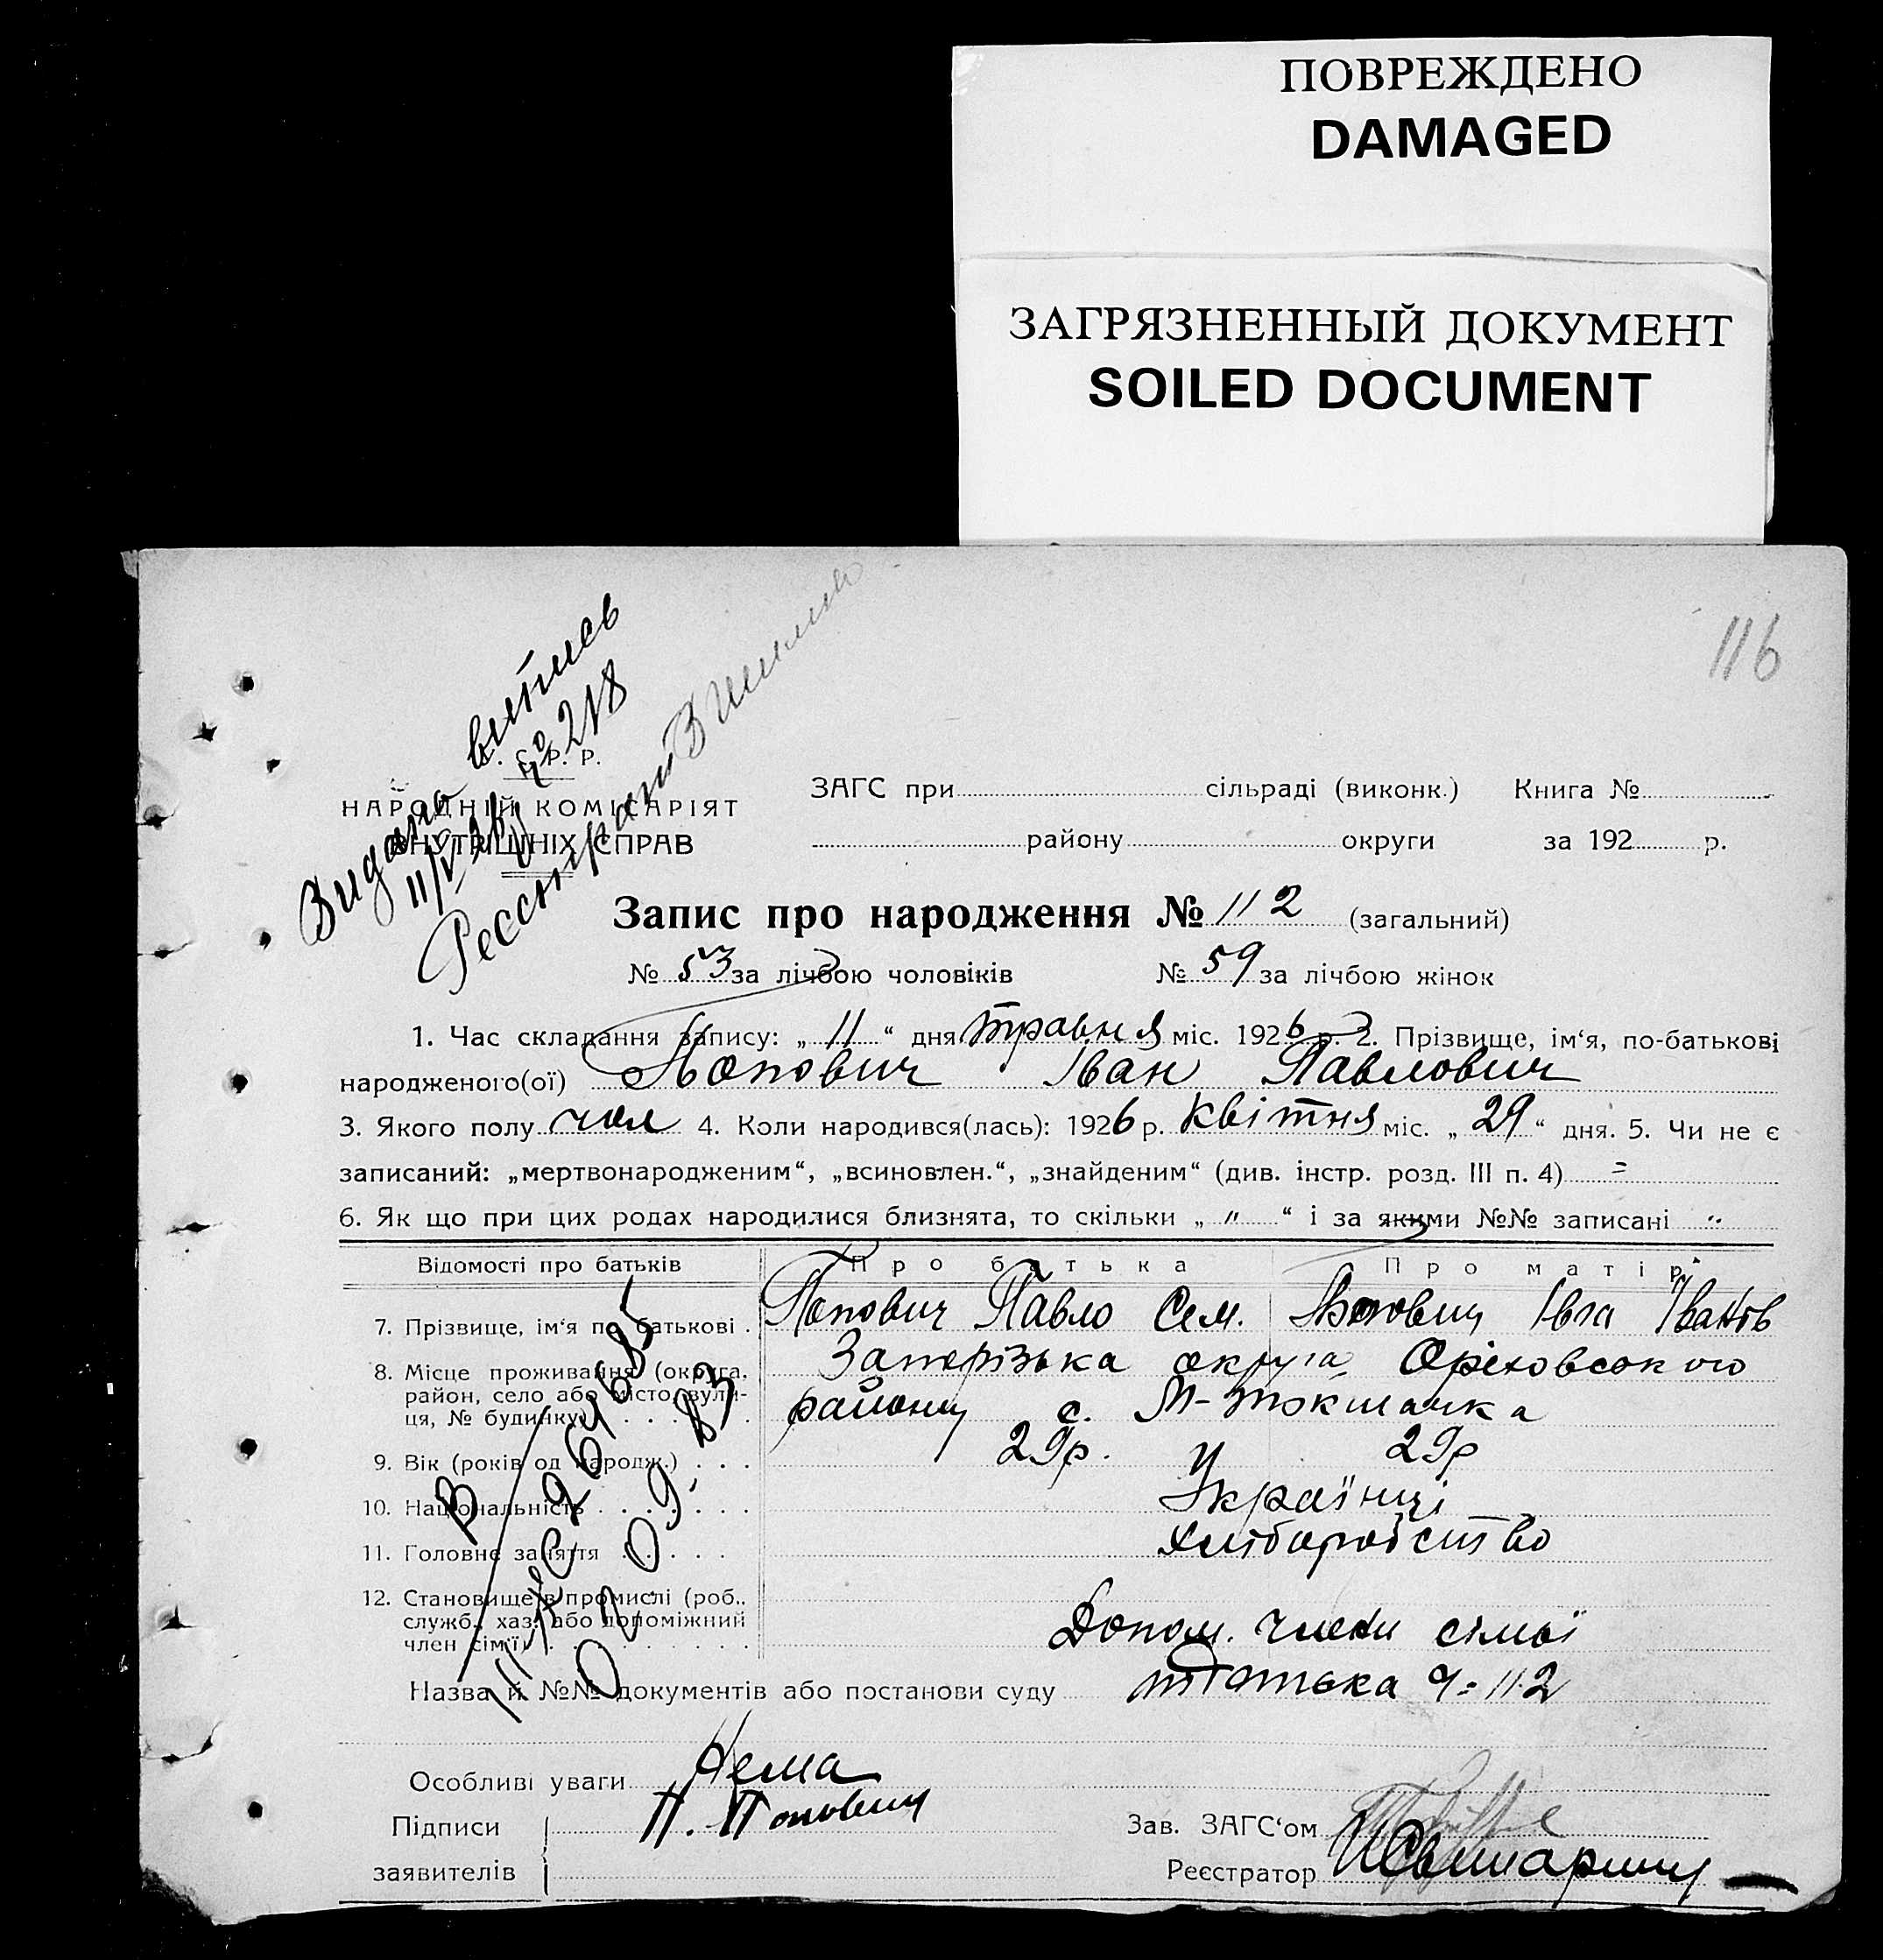 ПОВРЕЖДЕНО
DAMAGED
ЗАГРЯЗНЕННЫЙ ДОКУМЕНТ
SOILED DOCUMENT
116
Видано витись
11/V 26 № 218
Реєстратор
С. Р. Р.
НАРОДНІЙ КОМІСАРІЯТ
ВНУТРІШНІХ СПРАВ
ЗАГС при сільраді (виконк.) Книга №
району округи за 192 р.
Запис про народження № 112 (загальний)
№ 53 за лічбою чоловіків № 59 за лічбою жінок
1. Час складання запису: „ 11 “ дня травня міс. 1926 р. 2. Прізвище, ім‘я, по-батькові
народженого(ої) Попович Іван Павлович
3. Якого полу чол 4. Коли народився(лась): 1926 р. квітня міс. „ 29 “ дня. 5. Чи не є
записаний: „мертвонародженим“, „всиновлен.“, „знайденим“ (див. інстр. розд. III п. 4) =
6. Як що при цих родах народилися близнята, то скільки „ " “ і за якими №№ записані "
Відомості про батьків Про батька Про матір
7. Прізвище, ім‘я по батькові . Попович Павло Сем. Попович Івга Іванів
8. Місце проживання (округа, Запорізька округа Оріховського
район, село або місто, вули-
ця, № будинку) . . . . . району с. М-Токмачка
9. Вік (років од народж.) . . . 29р. 29р
10. Національність . . . . . . Українці
11. Головне заняття . . . . . хліборобство
12. Становище в промислі (роб.,
служб., хаз. або допоміжний
член сім‘ї) . . . . . . . . Допом. члени сімьї
Назва й №№ документів або постанови суду 112
Особливі уваги Нема
Підписи П. Попович Зав. ЗАГС‘ом
заявителів Реєстратор